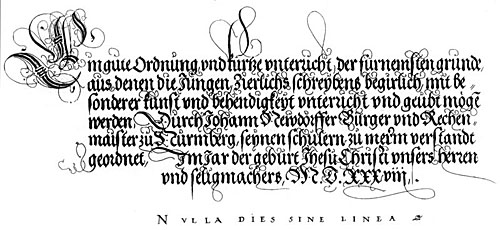 Ein gute Ordnung, vnd kurtze vnterricht, der furnemsten grunde,
aus denen die Jungen, Zierlichs schreybens begirlich, mit be¬
sonderer kunst vnd behendigkeyt vnterricht vnd geubt mogē
werden. Durch Johann Newdorffer Burger vnd Rechen
maister zu Nurmberg, seynen schulern zu mererm verstandt
geordnet, Im Jar der geburt Jhesu Christi vnsers herren
vnd seligmachers, M. D. XXXviij.
NVLLA DIES SINE LINEA